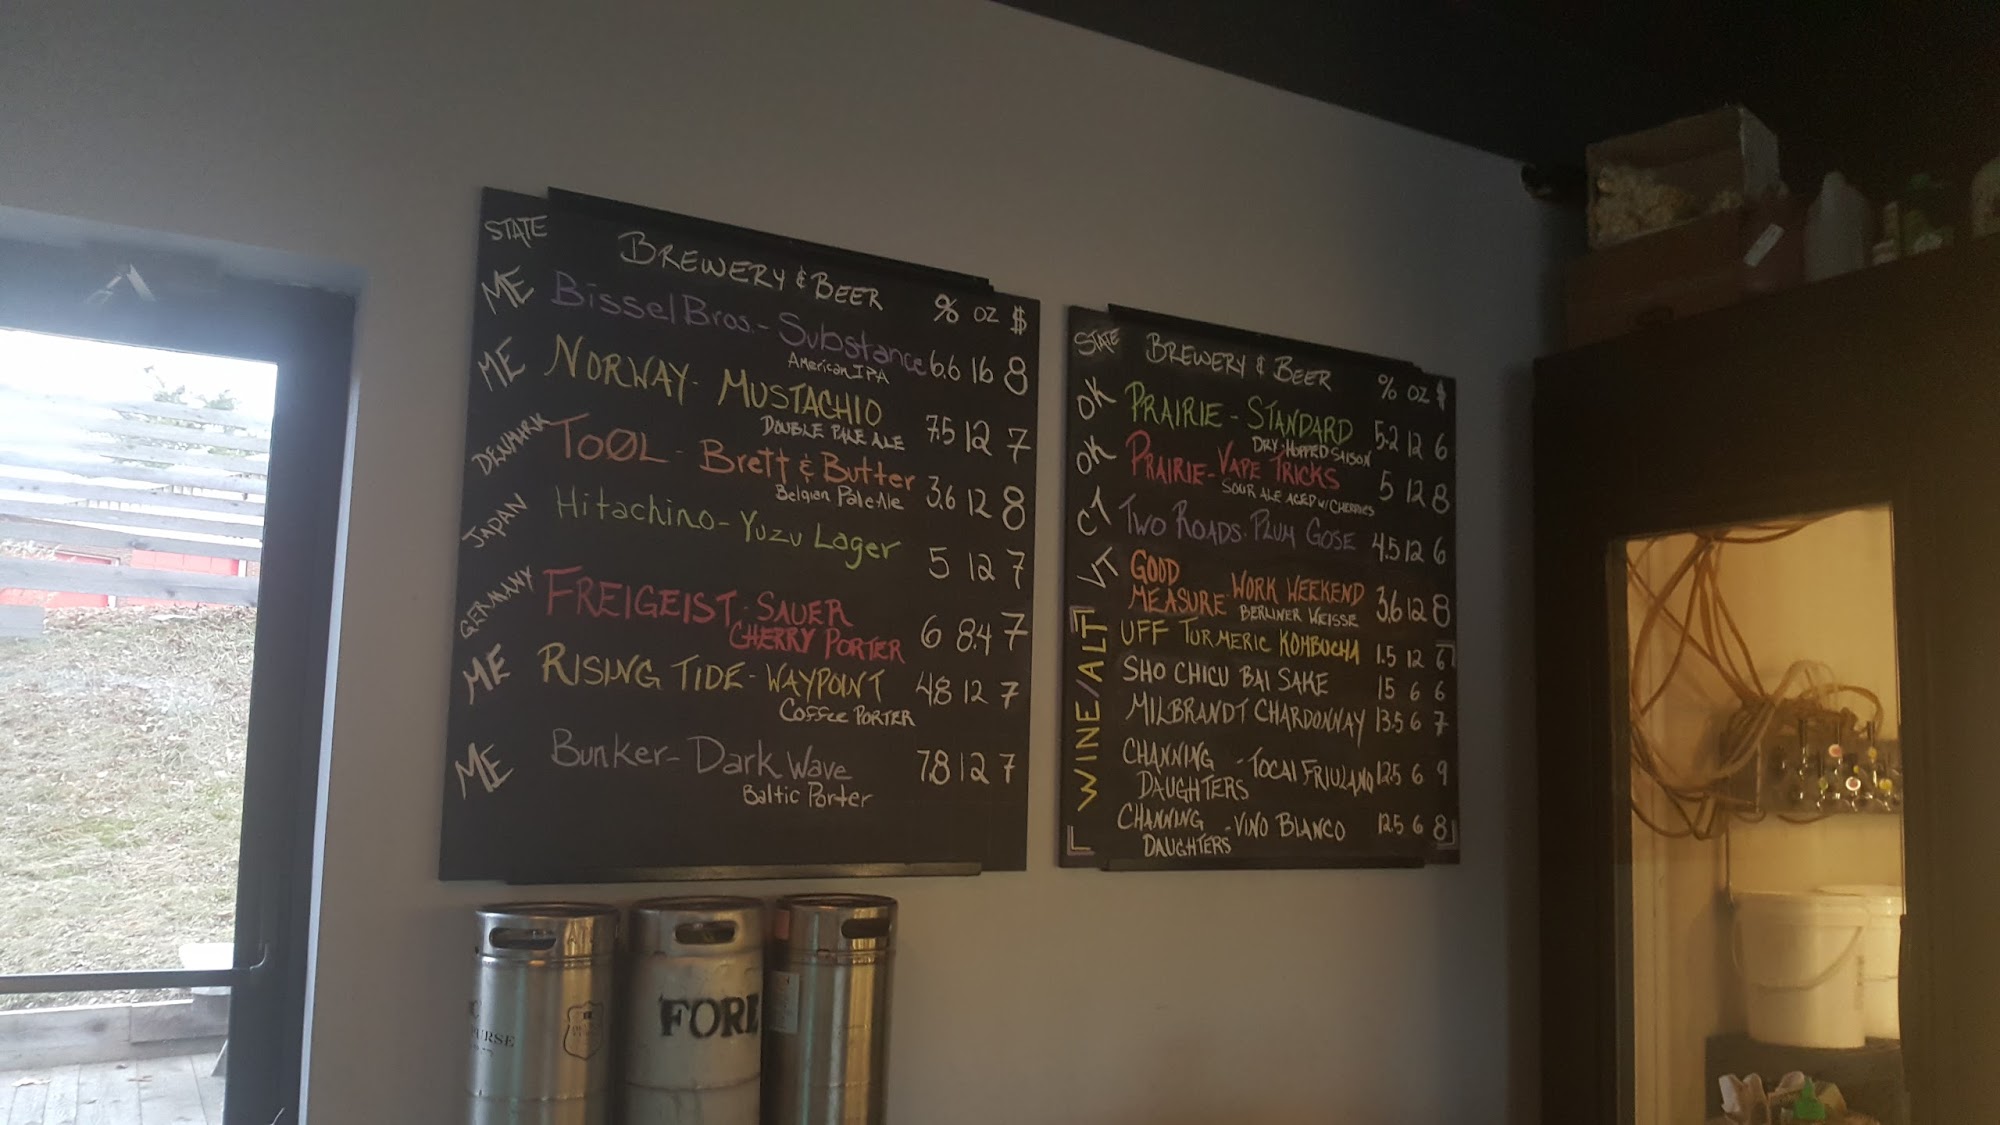 STATE BREWERY & BEER % OZ $
ME Bissel Bros. - Substance 6.6 16 8
American IPA
ME NORWAY - MUSTACHIO 7.5 12 7
DOUBLE PALE ALE
DENMARK TOØL - Brett & Butter 3.6 12 8
Belgian Pale Ale
JAPAN Hitachino - Yuzu Lager 5 12 7
GERMANY FREIGEIST - SAUER 6 8.4 7
CHERRY PORTER
ME RISING TIDE - WAYPOINT 4.8 12 7
Coffee PORTER
ME Bunker - Dark Wave 7.8 12 7
Baltic Porter
STATE BREWERY & BEER % OZ $
OK PRAIRIE - STANDARD 5.2 12 6
DRY-HOPPED SAISON
OK PRAIRIE - VAPE TRICKS 5 12 8
SOUR ALE AGED W/ CHERRIES
CT TWO ROADS - PLUM GOSE 4.5 12 6
VT GOOD
MEASURE - WORK WEEKEND 3.6 12 8
BERLINER WEISSE
WINE/ALT
UFF TURMERIC KOMBUCHA 1.5 12 6
SHO CHICU BAI SAKE 15 6 6
MILBRANDT CHARDONNAY 13.5 6 7
CHANNING
DAUGHTERS - TOCAI FRIULANO 12.5 6 9
CHANNING
DAUGHTERS - VINO BLANCO 12.5 6 8
URSE
FORE